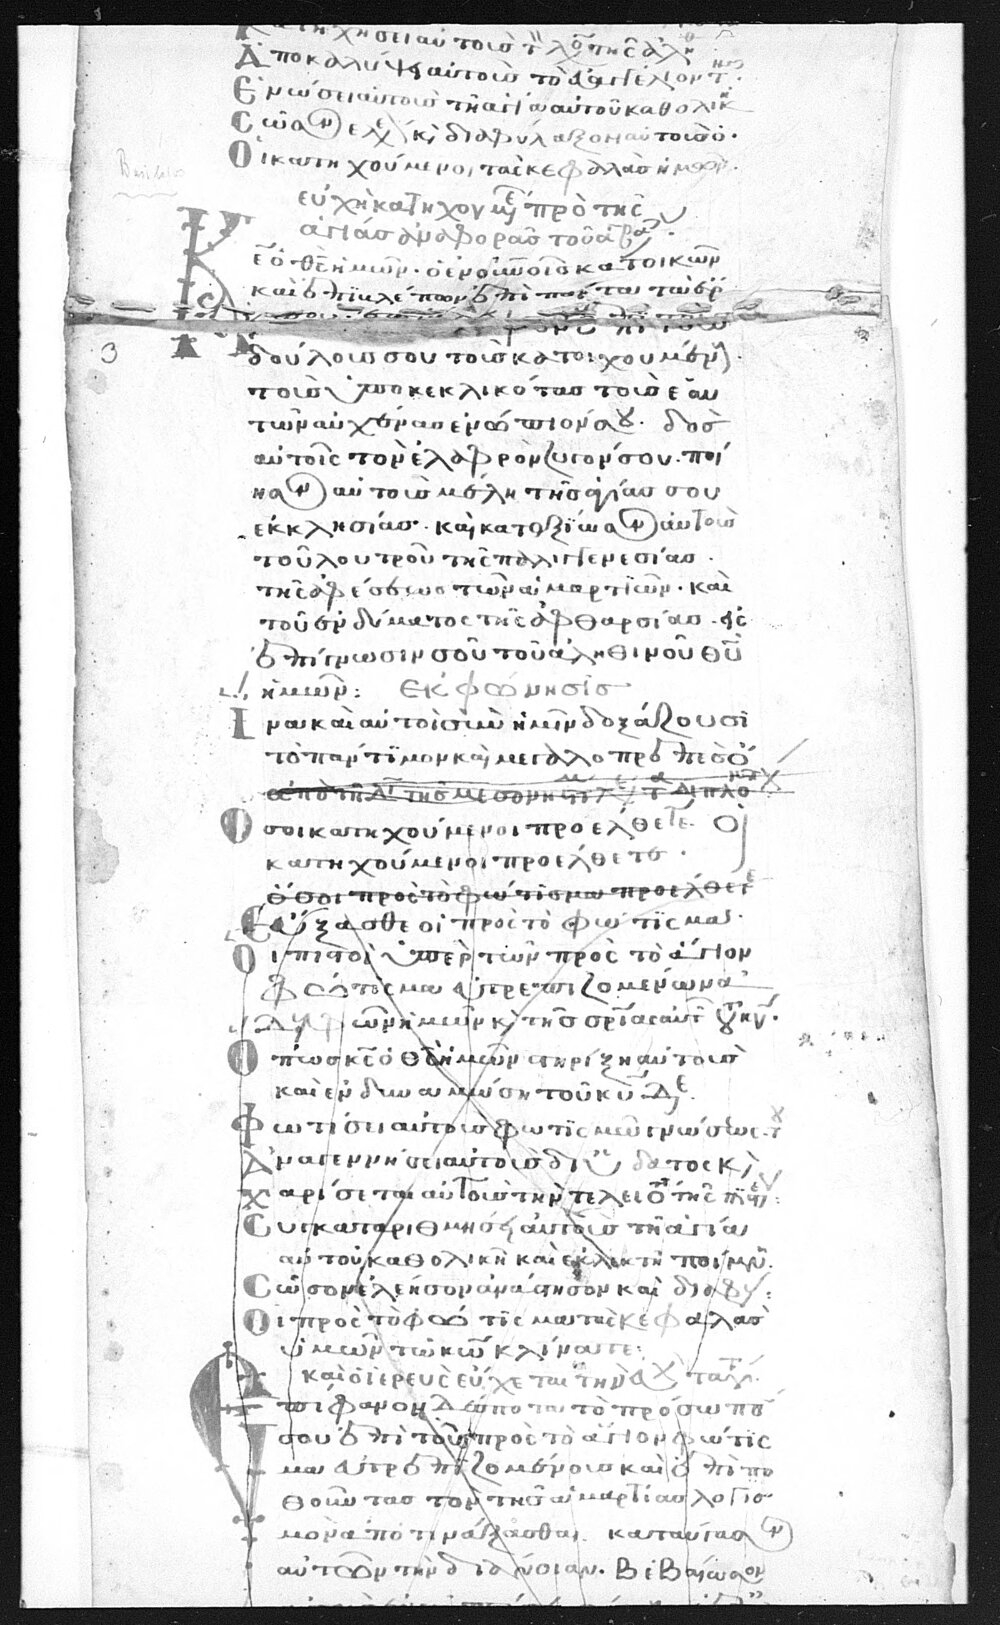 Αποκαλύψει αὐτοῖς τὸ εὐαγγέλιον τ
Ενώσει αὐτοὺς τῆ ἁγία αὐτοῦ καθολικ
Σῶσον ἐλε κ διαφύλαξον αὐτοὺς ὁ.
Οἱ κατηχούμενοι τὰς κεφαλὰς ἡμῶν.
εὐχὴ κατηχουμε πρὸ τῆς
ἁγίας ἀναφορᾶς τοῦ ἁγ βασ.
Κε ὁ θς ἡμῶν· ὁ ἐν οὐνοῖς κατοικῶν
καὶ ἐπιβλέπων ἐπὶ πάντα τὰ ἔργ
δούλους σου τοὺς κατηχουμέν
τοὺς ὑποκεκλικότας τοὺς ἑαυ
τῶν αὐχένας ἐνώπιόν σου. δὸς
αὐτοῖς τὸν ἐλαφρὸν ζυγόν σου. ποί
ησον αὐτοὺς μέλη τῆς ἁγίας σου
ἐκκλησίας. καὶ καταξίωσον αὐτοὺς
τοῦ λουτροῦ τῆς παλιγγενεσίας.
τῆς ἀφέσεως τῶν ἁμαρτιῶν. καὶ
τοῦ ἐνδύματος τῆς ἀφθαρσίας. εἰς
ἐπίγνωσιν σοῦ τοῦ ἀληθινοῦ θυ
ἡμῶν: Εκφώνησις
Ινα καὶ αὐτοὶ σὺν ἡμῖν δοξάζουσι
τὸ πάντιμον καὶ μεγαλοπρεπὲς ὄ
ἀπὸ τῆ δ τῆς μεσονηστ
Οσοι κατηχούμενοι προέλθετε. Οἱ
κατηχούμενοι προέλθετε.
ὅσοι πρὸς τὸ φώτισμα προέλθετε
Εὔξασθε οἱ πρὸς τὸ φώτισμα.
Οἱ πιστοὶ ὑπὲρ τῶν πρὸς τὸ ἅγιον
φώτισμα εὐτρεπιζομένων ἀ
δελφῶν ἡμῶν κ τῆς σρίας αὐτ
Οπως κς ὁ θς ἡμῶν στηρίξη αὐτοὺς
καὶ ἐνδυναμώση τοῦ κυ δε
Φωτίσει αὐτοὺς φωτισμῶ γνώσεως.
Αναγεννήσει αὐτοὺς δι ὕδατος κ
Χαρίσεται αὐτοῖς τὴν τελειότ τῆς πίστε:
Συγκαταριθμήσει αὐτοὺς τῆ ἁγία
αὐτοῦ καθολικῆ καὶ ἐκλεκτῆ ποίμν.
Σῶσον ἐλέησον ἀνάστησον καὶ διαφύ:
Οἱ πρὸς τὸ φώτισμα τὰς κεφαλὰς
ὑμῶν τῶ κω κλίνατε:
καὶ ὁ ἱερεὺς εὔχεται τὴν εὐχ ταύτ.
Επίφανον δέσποτα τὸ πρόσωπό
σου ἐπὶ τοὺς πρὸς τὸ ἅγιον φώτισ
μα εὐτρεπιζομένους καὶ ἐπιπο
θοῦντας τὸν τῆς ἁμαρτίας λογισ
μὸν ἀποτινάξασθαι. καταύγασον
αὐτῶν τὴν διάνοιαν. Βεβαίωσον